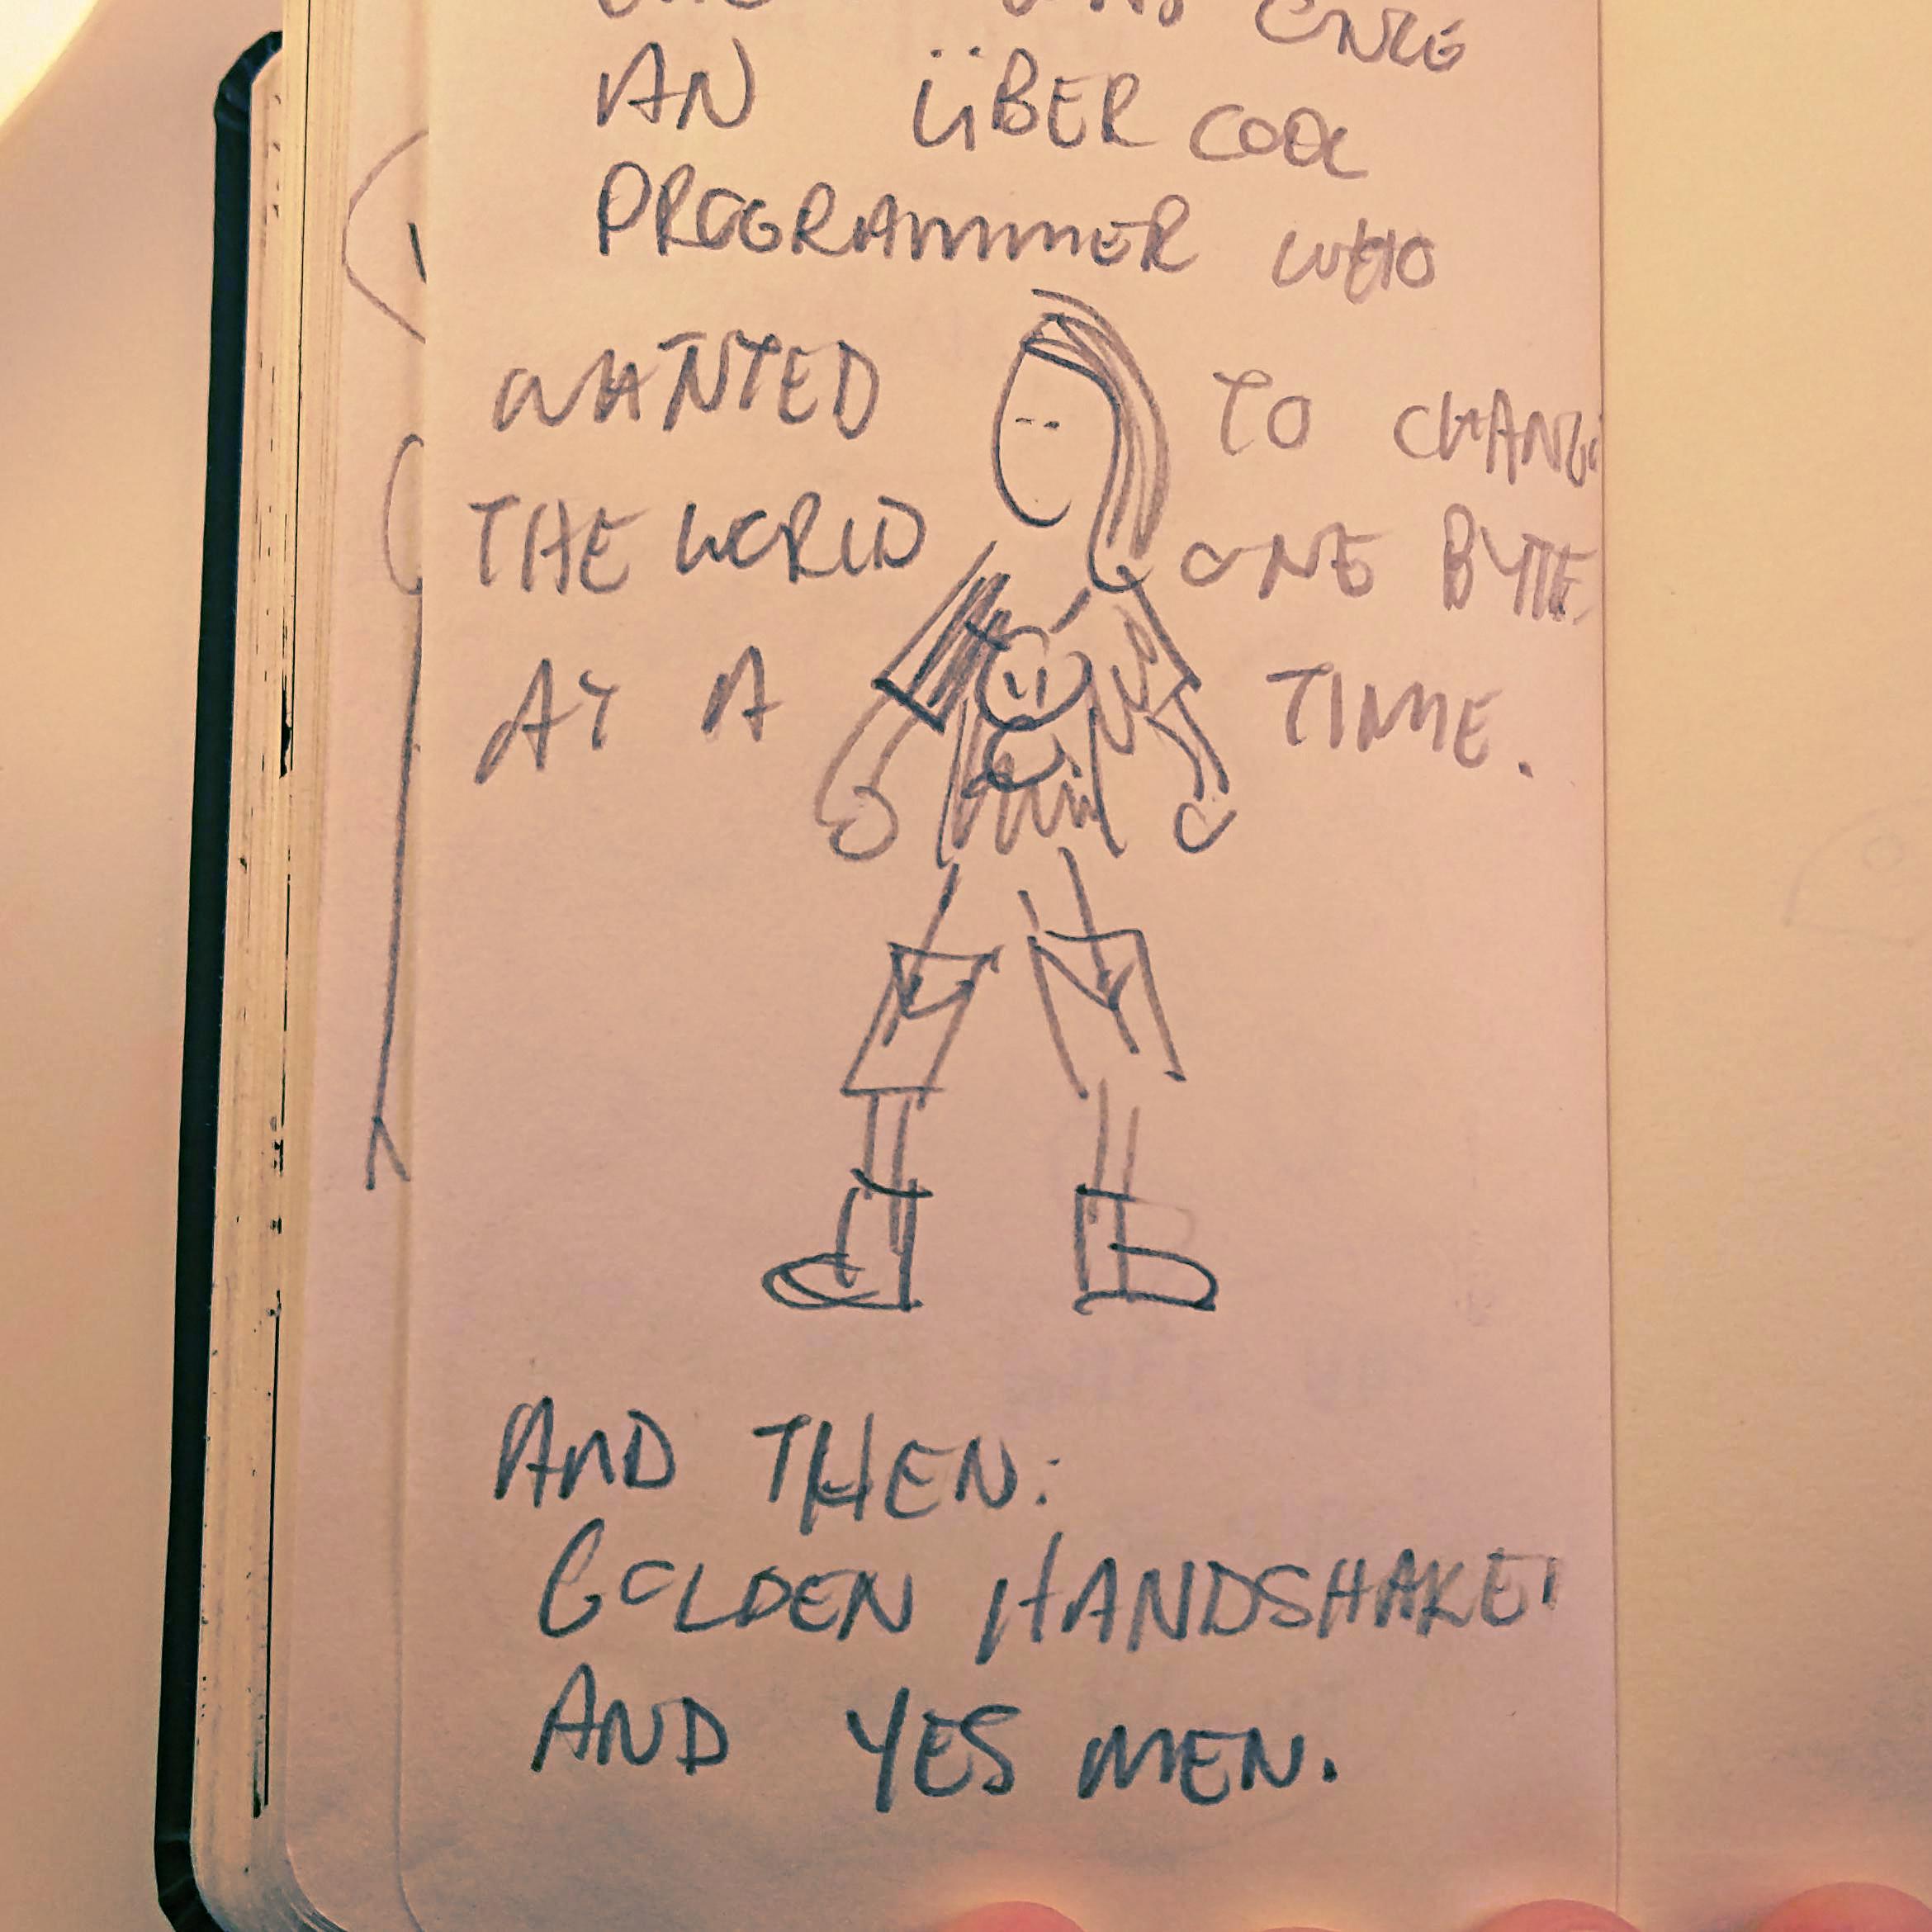 ONCE
AN ÜBER COOL
PROGRAMMER WHO
WANTED TO CHANGE
THE WORLD ONE BYTE
AT A TIME.
AND THEN:
GOLDEN HANDSHAKE
AND YES MEN.